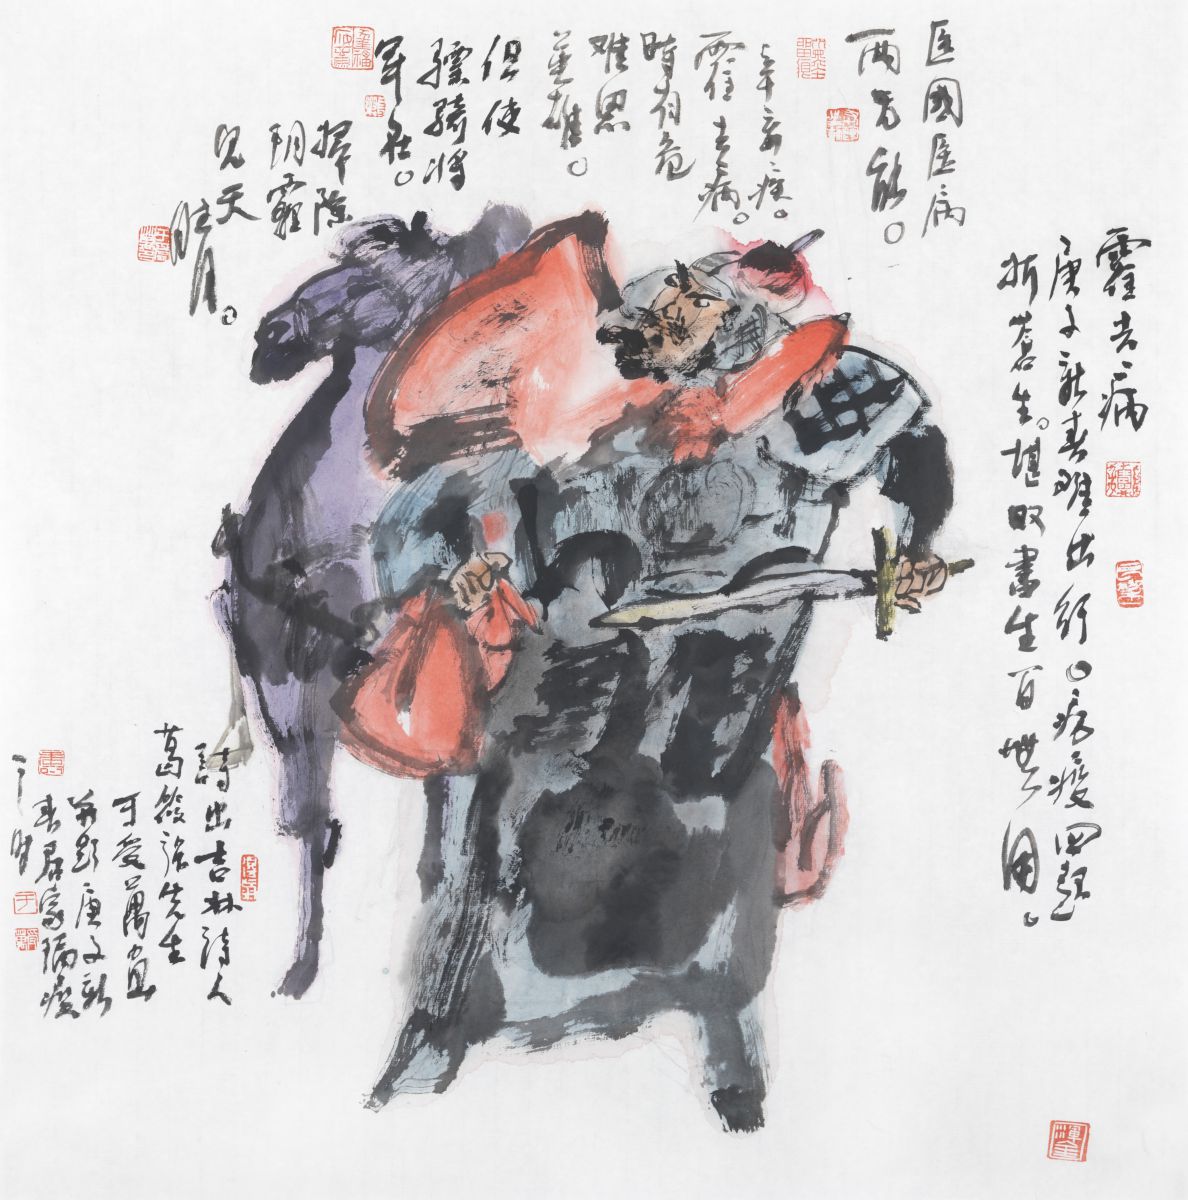 霍去病
庚子新春难出行。病疫四起
折苍生。堪叹书生百无用。
医國医病
两不能。
辛弃疾。
霍去病。
時有危
难思
英雄。
但使
骠骑将
军在。
掃除
阴霾
見天
晴。
詩出吉林詩人
葛筱强先生
可爱萬
并题庚子新
春居家隔疫